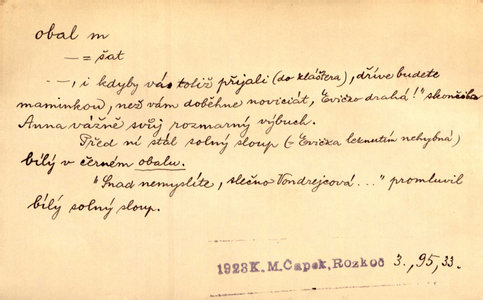 obal m
— = šat
- -, i kdyby vás totiž přijali (do kláštera), dříve budete
maminkou, než vám doběhne noviciát, Evičko drahá!" skončila
Anna vážně svůj rozmarný výbuch.
Před ní stál solný sloup (= Evička leknutím nehybná)
bílý v černém obalu.
"Snad nemyslíte, slečno Vondrejcová ..." promluvil
bílý solný sloup.
1923 K. M. Čapek, Rozkoč 3., 95, 33.